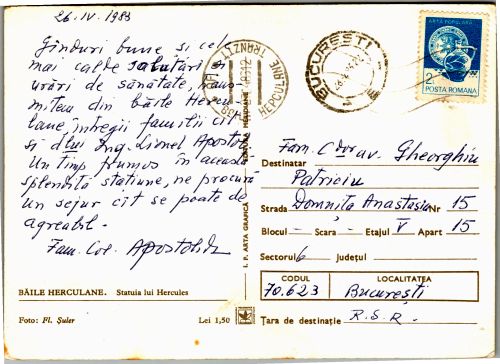 26.IV.1983
Gînduri bune și cele
mai calde salutări și
urări de sănătate, trans-
mitem din băile Hercu-
lane întregii familii cît
și dlui Ing. Lionel Apostol.
Un timp frumos în această
splendită stațiune, ne procură
un sejur cît se poate de
agreabil.
Fam. Col. Apostolide
BĂILE HERCULANE. Statuia lui Hercules
Foto: Fl. Șuler Lei 1,50
I. P. ARTA GRAFICĂ
HERCULANE TRANZIT
BUCUREȘTI
ARTA POPULARĂ
2
POSTA ROMANA
Fam. Cdor av. Gheorghiu
Destinatar
Patriciu
Strada Domnița Anastasia Nr 15
Blocul — Scara — Etajul V Apart 15
Sectorul 6 Județul
CODUL LOCALITATEA
70.623 București
Țara de destinație R.S.R.